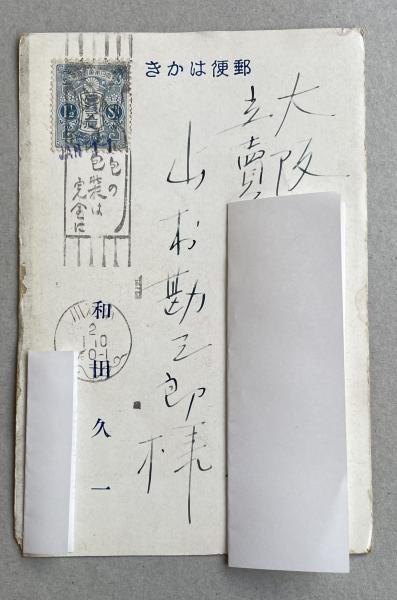 郵便はかき
大阪
立賣
山村勘三郎様
和田久一
1½ Sn
小包の
包装は
完全に
2
1 10